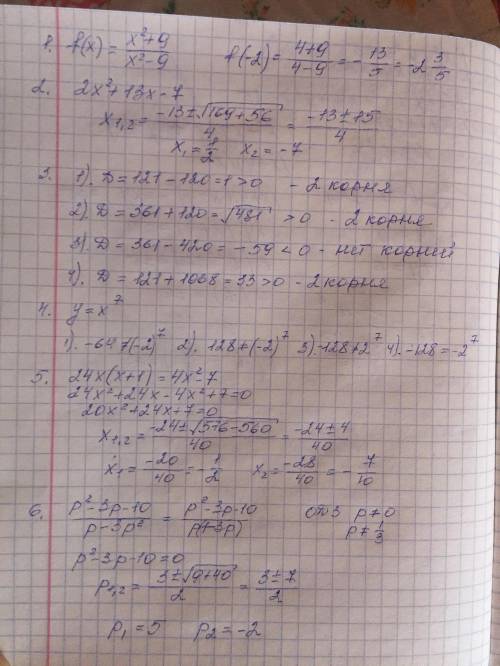 1. f(x) = x²+9 / x²-9    f(-2) = 4+9 / 4-9 = - 13/5 = -2 3/5
2. 2x²+13x-7
x₁,₂ = -13±√169+56 / 4 = -13±15 / 4
x₁ = 1/2    x₂ = -7
3. 1). D = 121-120 = 1 > 0 - 2 корня
2). D = 361+120 = √481 > 0 - 2 корня
3). D = 361-420 = -59 < 0 - нет корней
4). D = 121+1068 = 33 > 0 - 2 корня
4. y = x⁷
1). -64≠(-2)⁷ 2). 128≠(-2)⁷ 3) -128≠2⁷ 4). -128 = -2⁷
5. 24x(x+1) = 4x²-7
24x²+24x-4x²+7=0
20x²+24x+7=0
x₁,₂ = -24±√576-560 / 40 = -24±4 / 40
x₁ = -20/40 = - 1/2    x₂ = -28/40 = - 7/10
6. p²-3p-10 / p-3p² = p²-3p-10 / p(1-3p)    ОДЗ p≠0
p≠ 1/3
p²-3p-10=0
p₁,₂ = 3±√9+40 / 2 = 3±7 / 2
p₁ = 5    p₂ = -2